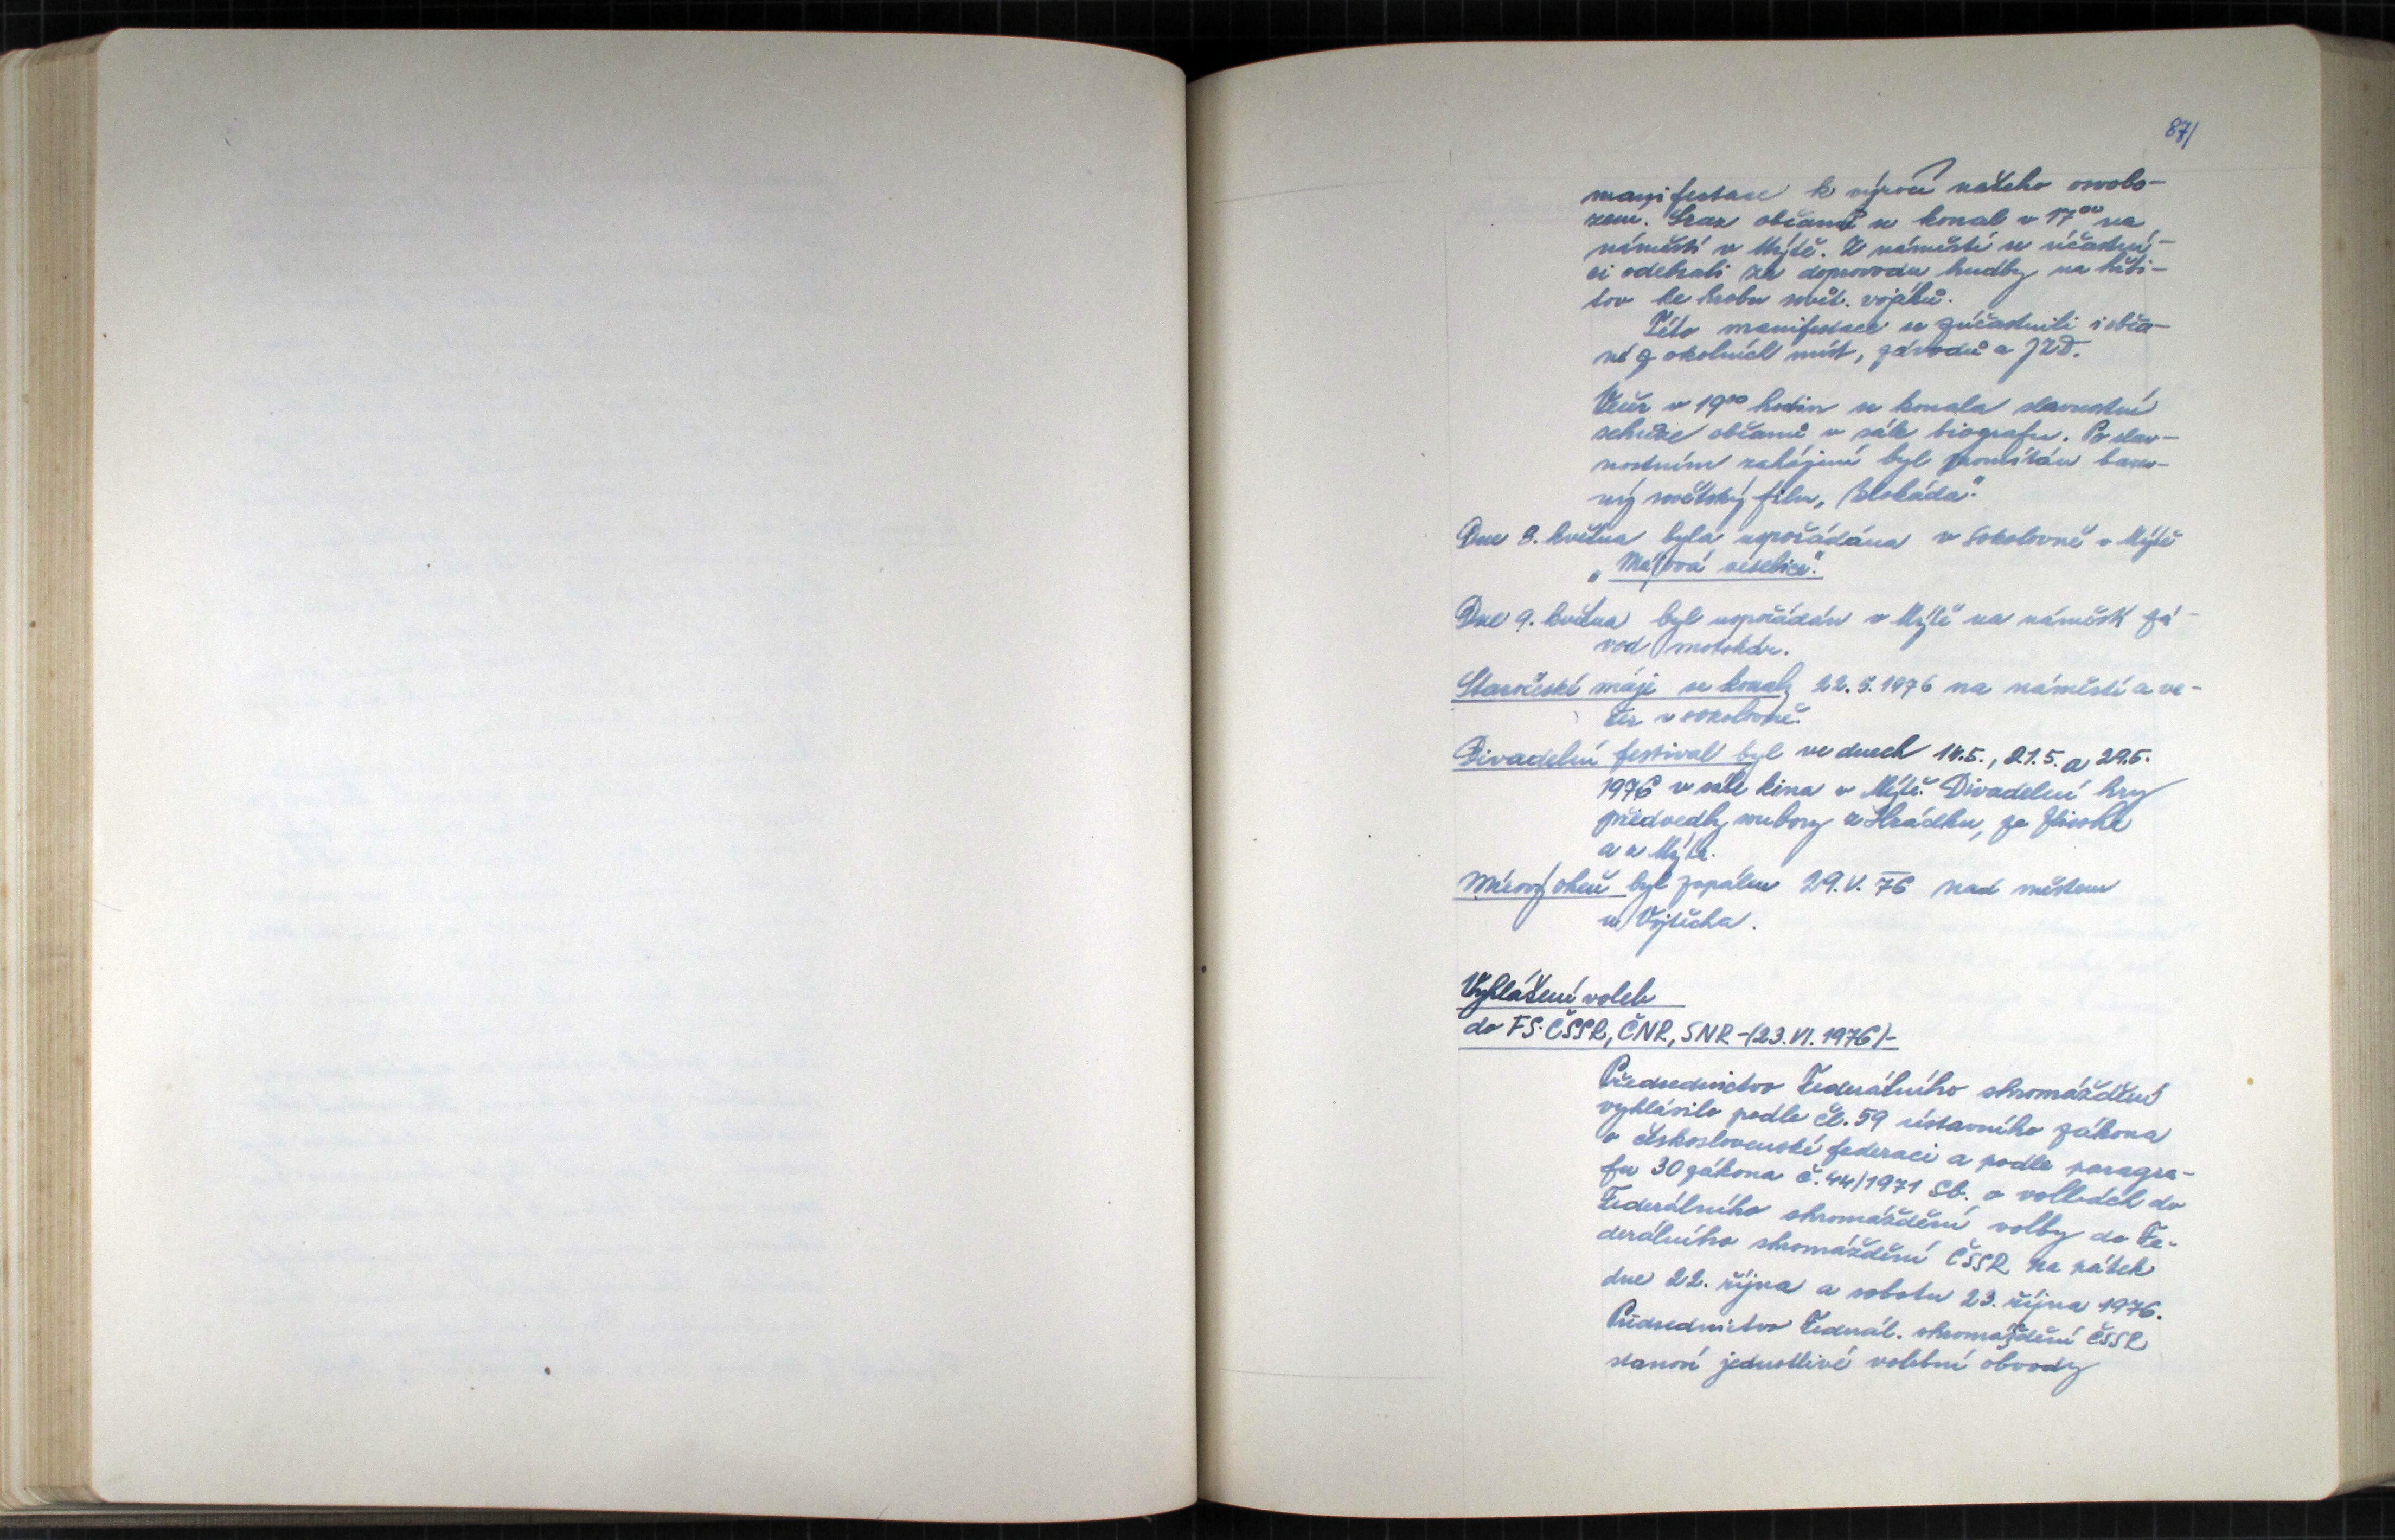 87/
manifestace k výročí našeho osvobo-
zení. Sraz občanů se konal v 17⁰⁰ na
náměstí v Mýtě. Z náměstí se účastní-
ci odebrali za doprovodu hudby na hřbi-
tov ke hrobu sovět. vojáků.
Této manifestace se zúčastnili i obča-
né z okolních míst, závodů a JZD.
Večer v 19⁰⁰ hodin se konala slavnostní
schůze občanů v sále biografu. Po slav-
nostním zahájení byl promítán barev-
ný sovětský film „Blokáda“.
Dne 8. května byla uspořádána v Sokolovně v Mýtě
„Májová veselice“.
Dne 9. května byl uspořádán v Mýtě na náměstí zá-
vod motokár.
Staročeské máje se konaly 22.5.1976 na náměstí a ve-
čer v sokolovně.
Divadelní festival byl ve dnech 14.5., 21.5. a 29.5.
1976 v sále kina v Mýtě. Divadelní hry
předvedly soubory z Hrádku, ze
a z Mýta.
Mírový oheň byl zapálen 29.V.76 nad městem
u Vojtěcha.
Vyhlášení voleb
do FS ČSSR, ČNR, SNR -(23.VI.1976)-
Předsednictvo Federálního shromáždění
vyhlásilo podle čl. 59 ústavního zákona
o československé federaci a podle paragra-
fu 30 zákona č. 44/1971 Sb. o volbách do
Federálního shromáždění volby do Fe-
derálního shromáždění ČSSR na pátek
dne 22. října a sobotu 23. října 1976.
Předsednictvo Federál. shromáždění ČSSR
stanoví jednotlivé volební obvody